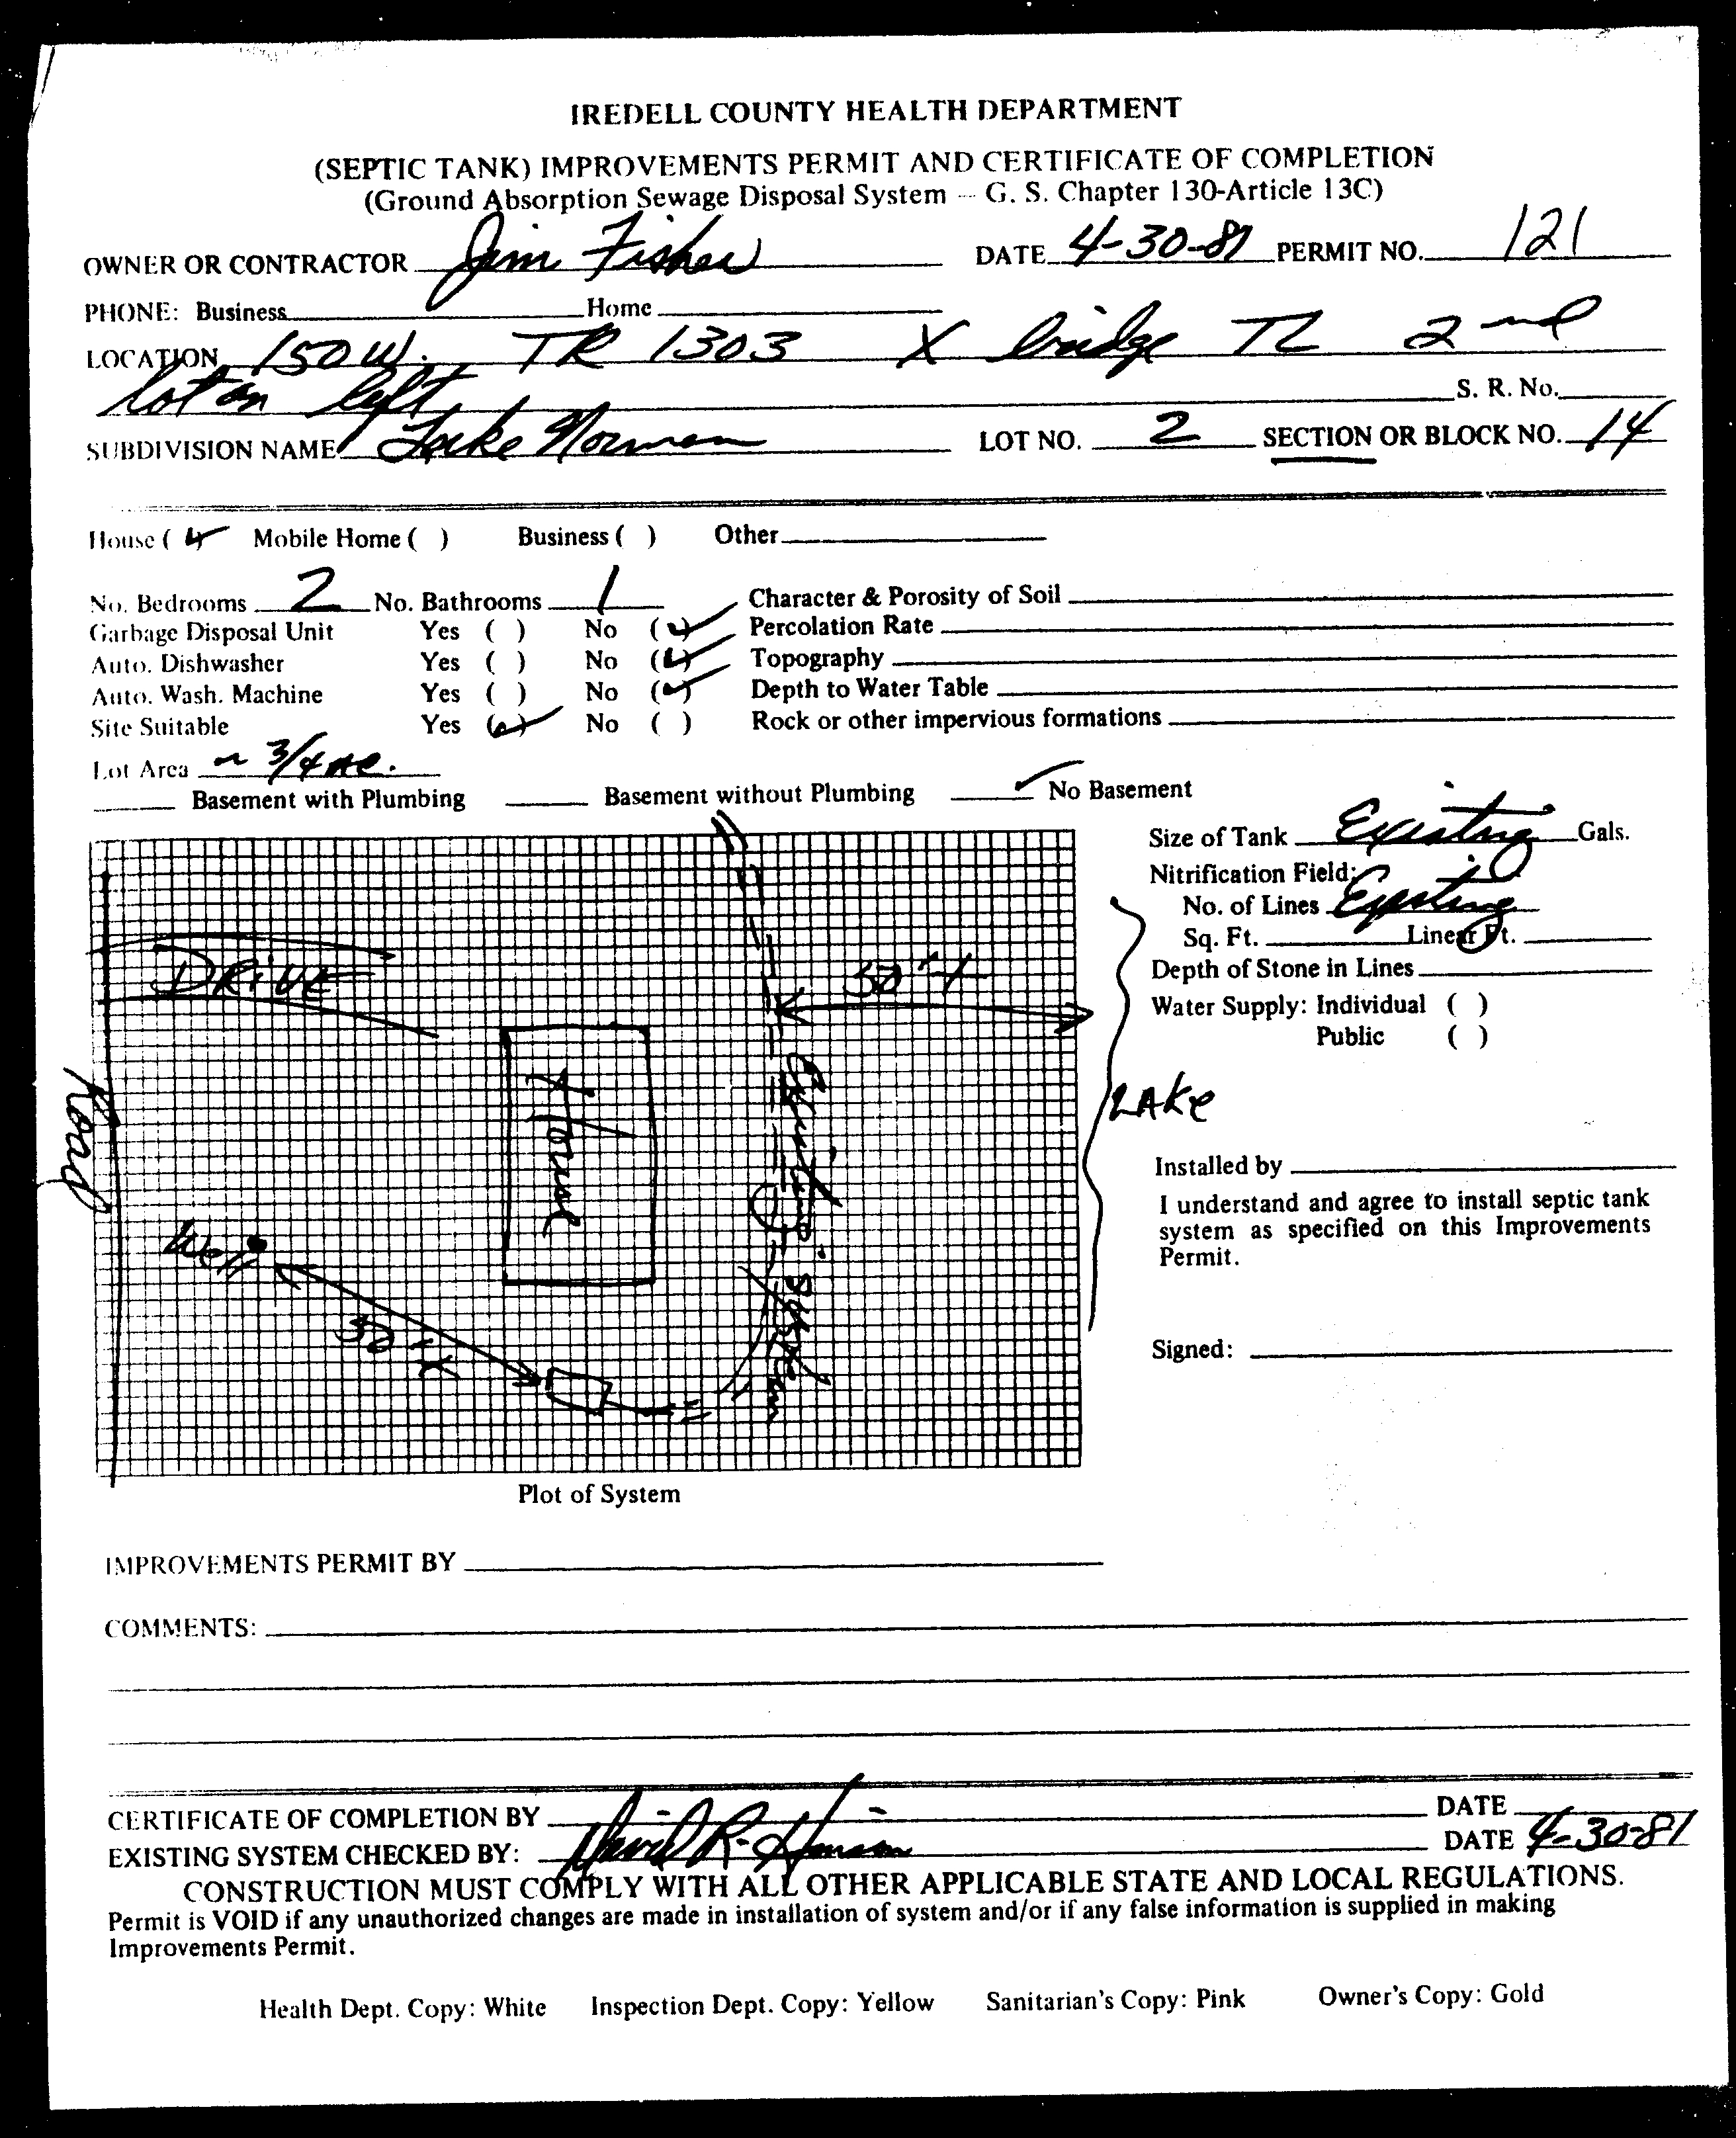 IREDELL COUNTY HEALTH DEPARTMENT
(SEPTIC TANK) IMPROVEMENTS PERMIT AND CERTIFICATE OF COMPLETION
(Ground Absorption Sewage Disposal System -- G. S. Chapter 130-Article 13C)
OWNER OR CONTRACTOR Jim Fisher DATE 4-30-81 PERMIT NO. 121
PHONE: Business Home
LOCATION 150 W. TR 1303 X bridge TL 2nd
lot on left S. R. No.
SUBDIVISION NAME Lake Norman LOT NO. 2 SECTION OR BLOCK NO. 14
House ( ) Mobile Home ( ) Business ( ) Other
No. Bedrooms 2 No. Bathrooms 1 Character & Porosity of Soil
Garbage Disposal Unit Yes ( ) No (✓) Percolation Rate
Auto. Dishwasher Yes ( ) No (✓) Topography
Auto. Wash. Machine Yes ( ) No (✓) Depth to Water Table
Site Suitable Yes (✓) No ( ) Rock or other impervious formations
Lot Area ~ 3/4 AC.
Basement with Plumbing Basement without Plumbing ✓ No Basement
Size of Tank Existing Gals.
Nitrification Field:
No. of Lines Existing
Sq. Ft. Linear Ft.
Depth of Stone in Lines
Water Supply: Individual ( )
Public ( )
DRIVE
50'+
Road
House
Existing System
LAKE
Well
50'+
Installed by
I understand and agree to install septic tank
system as specified on this Improvements
Permit.
Signed:
Plot of System
IMPROVEMENTS PERMIT BY
COMMENTS:
CERTIFICATE OF COMPLETION BY DATE
EXISTING SYSTEM CHECKED BY: David R. DATE 4-30-81
CONSTRUCTION MUST COMPLY WITH ALL OTHER APPLICABLE STATE AND LOCAL REGULATIONS.
Permit is VOID if any unauthorized changes are made in installation of system and/or if any false information is supplied in making
Improvements Permit.
Health Dept. Copy: White Inspection Dept. Copy: Yellow Sanitarian's Copy: Pink Owner's Copy: Gold